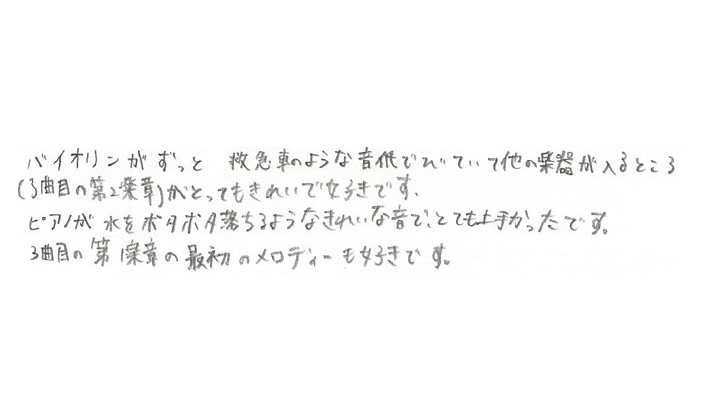 バイオリンがずっと 救急車のような音低でひいていて他の楽器が入るところ
(3曲目の第2楽章)がとってもきれいで好きです.
ピアノが水をポタポタ落ちるようなきれいな音で、とても上手かったです。
3曲目の第1楽章の最初のメロディーも好きです。